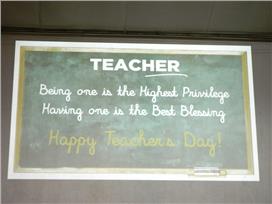 TEACHER
Being one is the Highest Privilege
Having one is the Best Blessing
Happy Teacher's Day!